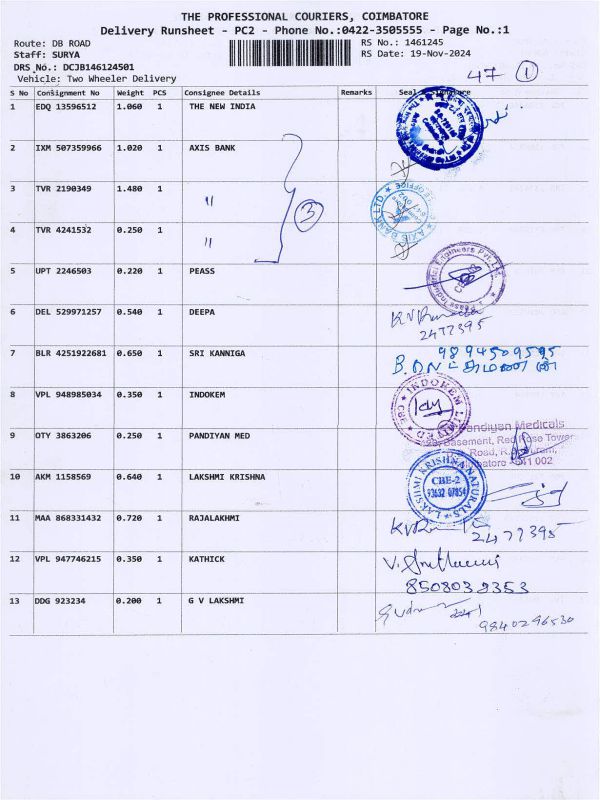 THE PROFESSIONAL COURIERS, COIMBATORE
Delivery Runsheet - PC2 - Phone No.:0422-3505555 - Page No.:1
Route: DB ROAD RS No.: 1461245
Staff: SURYA RS Date: 19-Nov-2024
DRS_No.: DCJB146124501
Vehicle: Two Wheeler Delivery 47 1
S No Consignment No Weight PCS Consignee Details Remarks Seal
1 EDQ 13596512 1.060 1 THE NEW INDIA
2 IXM 507359966 1.020 1 AXIS BANK
3 TVR 2190349 1.480 1 " 3 AXIS BANK LTD.
4 TVR 4241532 0.250 1 "
5 UPT 2246503 0.220 1 PEASS Engineers Pvt. Ltd.
6 DEL 529971257 0.540 1 DEEPA
2477395
7 BLR 4251922681 0.650 1 SRI KANNIGA 9894509595
8 VPL 948985034 0.350 1 INDOKEM INDOKEM LIMITED CBE
9 OTY 3863206 0.250 1 PANDIYAN MED Pandiyan Medicals
Basement, Red Rose Tower
Road, R.S.Puram,
641 002
10 AKM 1158569 0.640 1 LAKSHMI KRISHNA LAKSHMI KRISHNA NATURALS CBE-2
11 MAA 868331432 0.720 1 RAJALAKHMI
2477395
12 VPL 947746215 0.350 1 KATHICK
8508039353
13 DDG 923234 0.200 1 G V LAKSHMI
9840296530